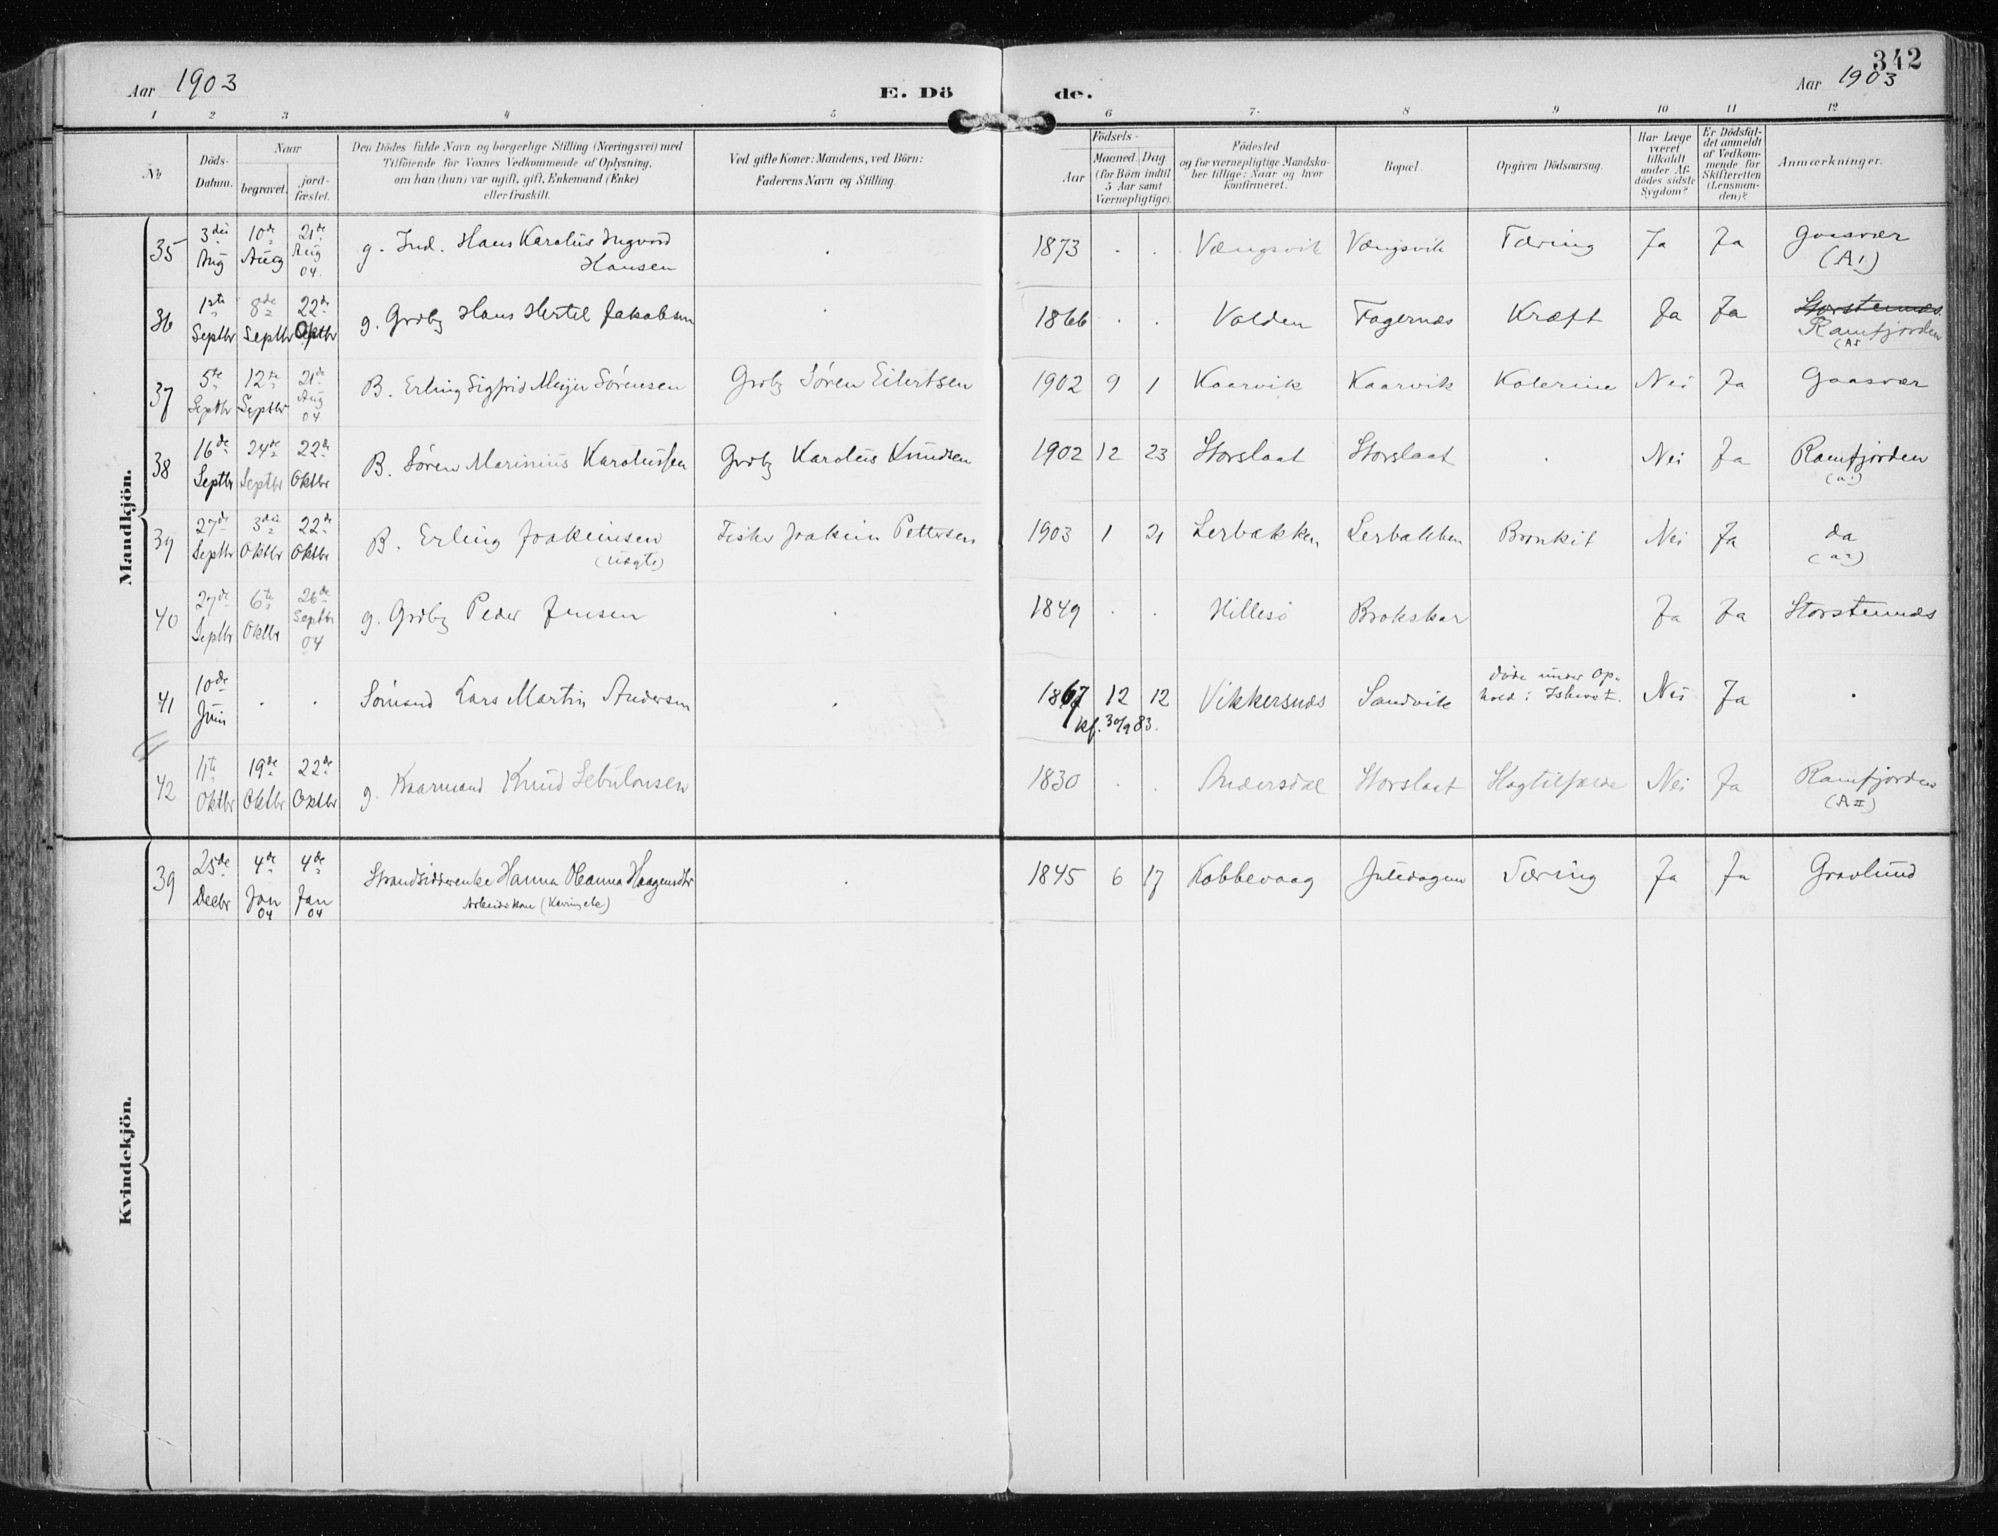 342
Aar 1903
E. Dö de.
Aar 1903
1 2 3 4 5 6 7. 8 9 10 11 12
No
Döds-Datum.
Naar
begravet.
jord-fæstet.
Den Dödes fulde Navn og borgerlige Stilling (Næringsvei) med
Tilföiende for Voxnes Vedkommende af Oplysning,
om han (hun) var ugift, gift, Enkemand (Enke)
eller fraskilt.
Ved gifte Koner: Mandens, ved Börn:
Faderens Navn og Stilling.
Födsels-
Aar
Maaned. Dag
(for Börn indtil
5 Aar samt
Værnepligtige).
Födested
og for værnepligtige Mandska-
ber tillige: Naar og hvor
konfirmeret.
Bopæl.
Opgiven Dödsaarsag.
Har Læge
været
tilkaldt
under Af-
dödes sidste
Sygdom?
Er Dödsfal-
det anmeldt
af Vedkom-
mende for
Skifteretten
(Lensman-
den)?
Anmærkninger.
Mandkjön.
35 3die Aug 10de Aug 21de Aug 04. g. Ind. Hans Karolus Ingvard Hansen . 1873 . . Vængsvik Vængsvik Tæring Ja Ja Gaasvær (A1)
36 1ste Septbr 8de Septbr 22de Oktbr g. Grdbr Hans Hertel Jakobsen . 1866 . . Volden Fagernæs Kræft Ja Ja Storstennæs Ramfjorden (A1
37 5te Septbr 12te Septbr 21de Aug 04 B. Erling Sigfrid Meijer Sørensen Grdbr Søren Eilertsen 1902 9 1 Kaarvik Kaarvik Kolerine Nei Ja Gaasvær
38 16de Septbr 24de Septbr 22de Oktbr B. Søren Marinius Karolussen Grdbr Karolus Knudsen 1902 12 23 Storslaat Storslaat . Nei Ja Ramfjorden (a1)
39 27de Septbr 3die Oktbr 22de Oktbr B. Erling Joakimsen (uægte) Fisker Joakim Pettersen 1903 1 21 Lerbakken Lerbakken Bronkit Nei Ja da (a2)
40 27de Septbr 6te Oktbr 26de Septbr 04 g. Grdbr Peder Jensen . 1849 . . Hillesö Brokskar Ja Ja Storstennæs
41 10de Juni . . Sømand Lars Martin Andersen . 1867 12 12 kf. 30/9 83. Vikkersnæs Sandvik døde under Op- hold i Ishavet. Nei Ja .
42 11te Oktbr 19de Oktbr 22de Oktbr g. Kaarmand Knud Sebulonsen 1830 . . Andersdal Storslaat Slagtilfælde Nei Ja Ramfjorden (AII)
Kvindekjön.
39 25de Decbr 4de Jan 04 4de Jan 04 Strandsidderenke Hanna Oleanna Haagensdtr Arbeidskone . 1845 6 17 Kobbevaag Tæring Ja Ja Gravlund